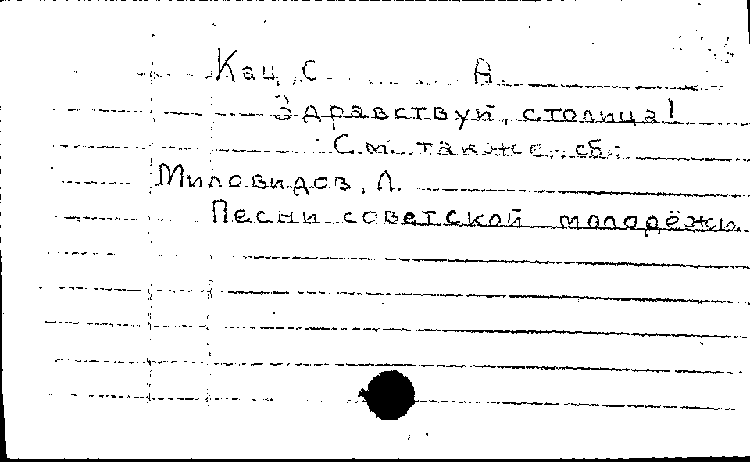 Кац, С. А.
Здравствуй, столица!
См. также сб.:
Миловидов, Л.
Песни советской молодёжи.